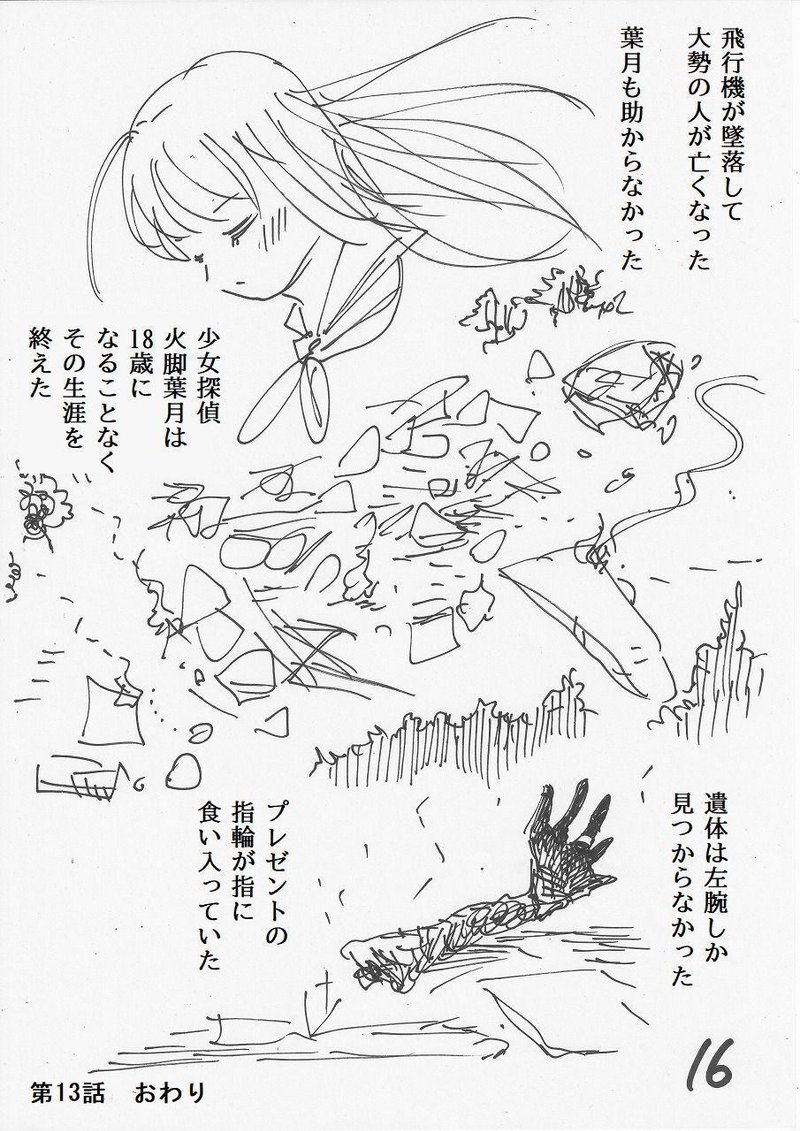 飛行機が墜落して
大勢の人が亡くなった
葉月も助からなかった
少女探偵
火脚葉月は
18歳に
なることなく
その生涯を
終えた
遺体は左腕しか
見つからなかった
プレゼントの
指輪が指に
食い入っていた
16
第13話　おわり